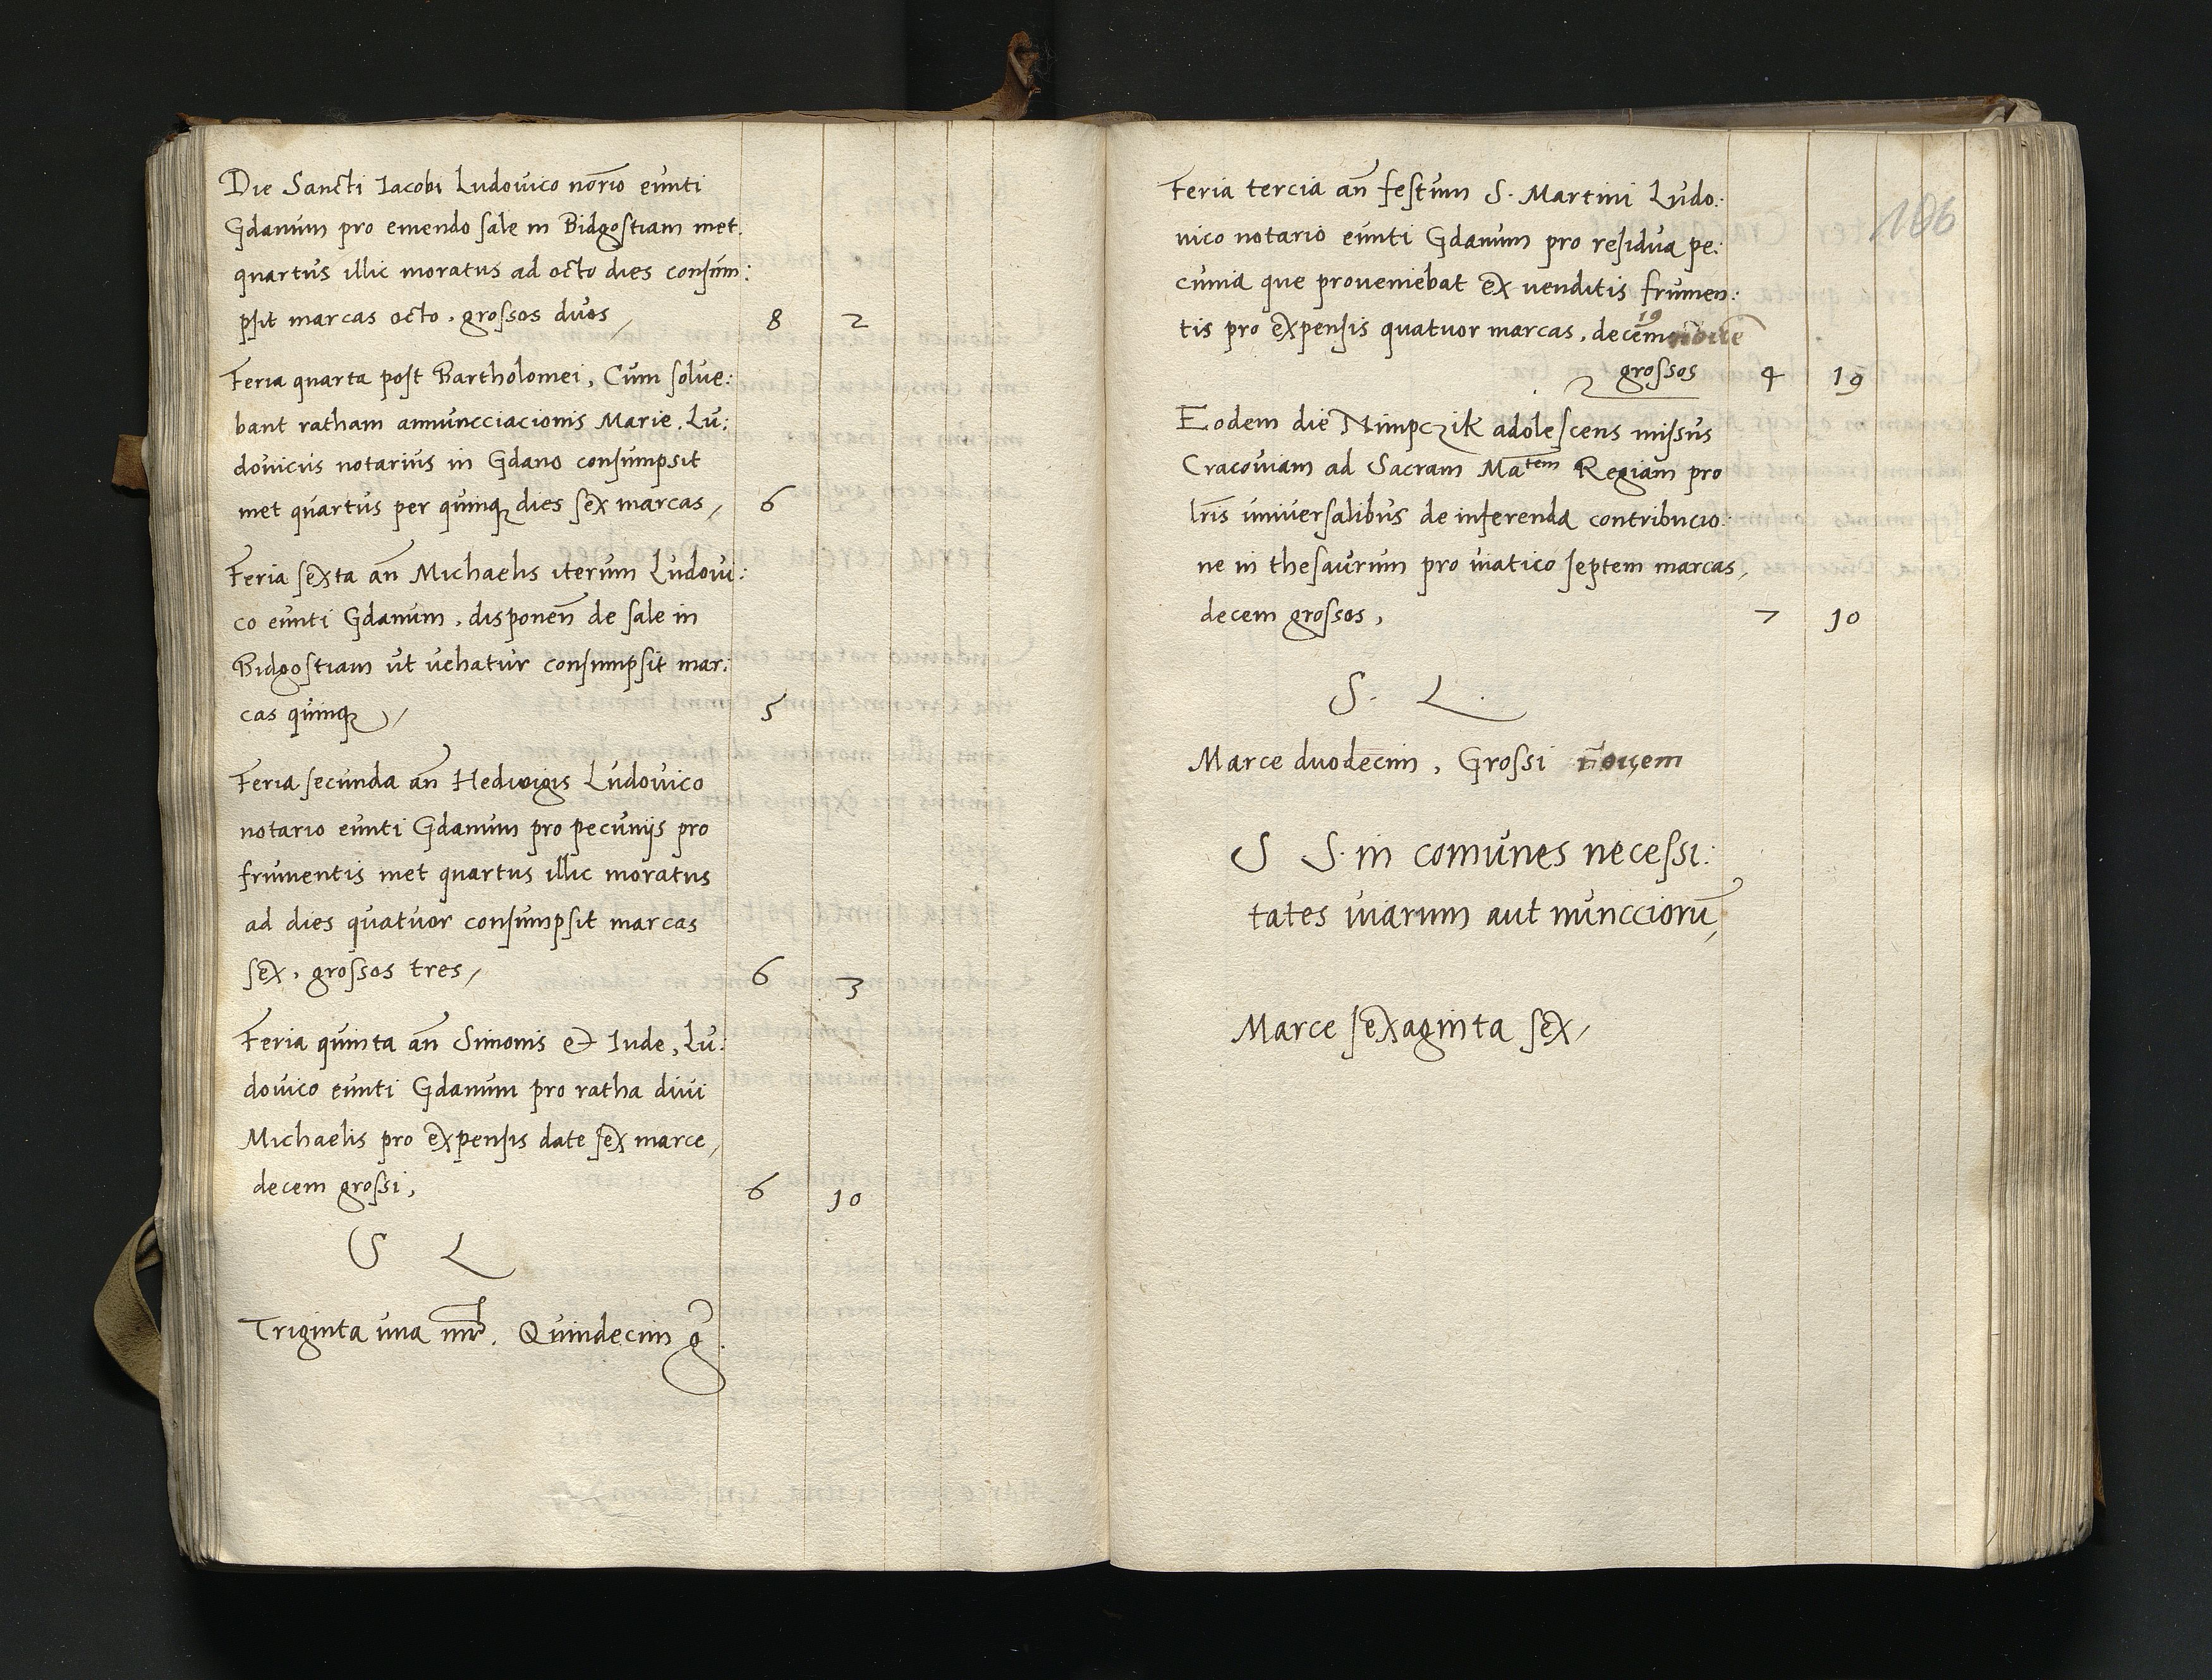 Die Sancti Iacobi Ludovico nōrio eunti
Gdanum pro emendo sale in Bidgostiam met.
quartus illic moratus ad octo dies consum:
psit marcas octo, grossos duos, 8 2
Feria quarta post Bartholomei, Cum solue:
bant ratham annuncciacionis Marie, Lu:
douicus notarius in Gdano consumpsit
met quartus per quinq dies sex marcas, 6
Feria sexta an̄ Michaelis iterum Ludoui:
co eunti Gdanum, disponen̄ de sale in
Bidgostiam ut vehatur consumpsit mar:
cas quinq, 5
Feria secunda an̄ Hedwigis Ludouico
notario eunti Gdanum pro pecunijs pro
frumentis met quartus illic moratus
ad dies quatuor consumpsit marcas
sex, grossos tres, 6 3
Feria quinta an̄ Simonis & Iude, Lu:
douico eunti Gdanum pro ratha diui
Michaelis pro expensis date sex marce,
decem grossi, 6 10
S L
Triginta una mr. Quindecim g.
106
Feria tercia an̄ festum S. Martini Ludo:
uico notario eunti Gdanum pro residua pe:
cunia que proueniebat ex venditis frumen:
19
tis pro expensis quatuor marcas, decem nouē
grossos 4 19
Eodem die Nimpczik adolescens missus
Cracouiam ad Sacram Matem Regiam pro
lr̄is uniuersalibus de inferenda contribucio:
ne in thesaurum pro viatico septem marcas,
decem grossos, 7 10
S. L.
Marce duodecim, Grossi nouem
S S. in comunes necessi:
tates viarum aut nuncciorū,
Marce sexaginta sex,